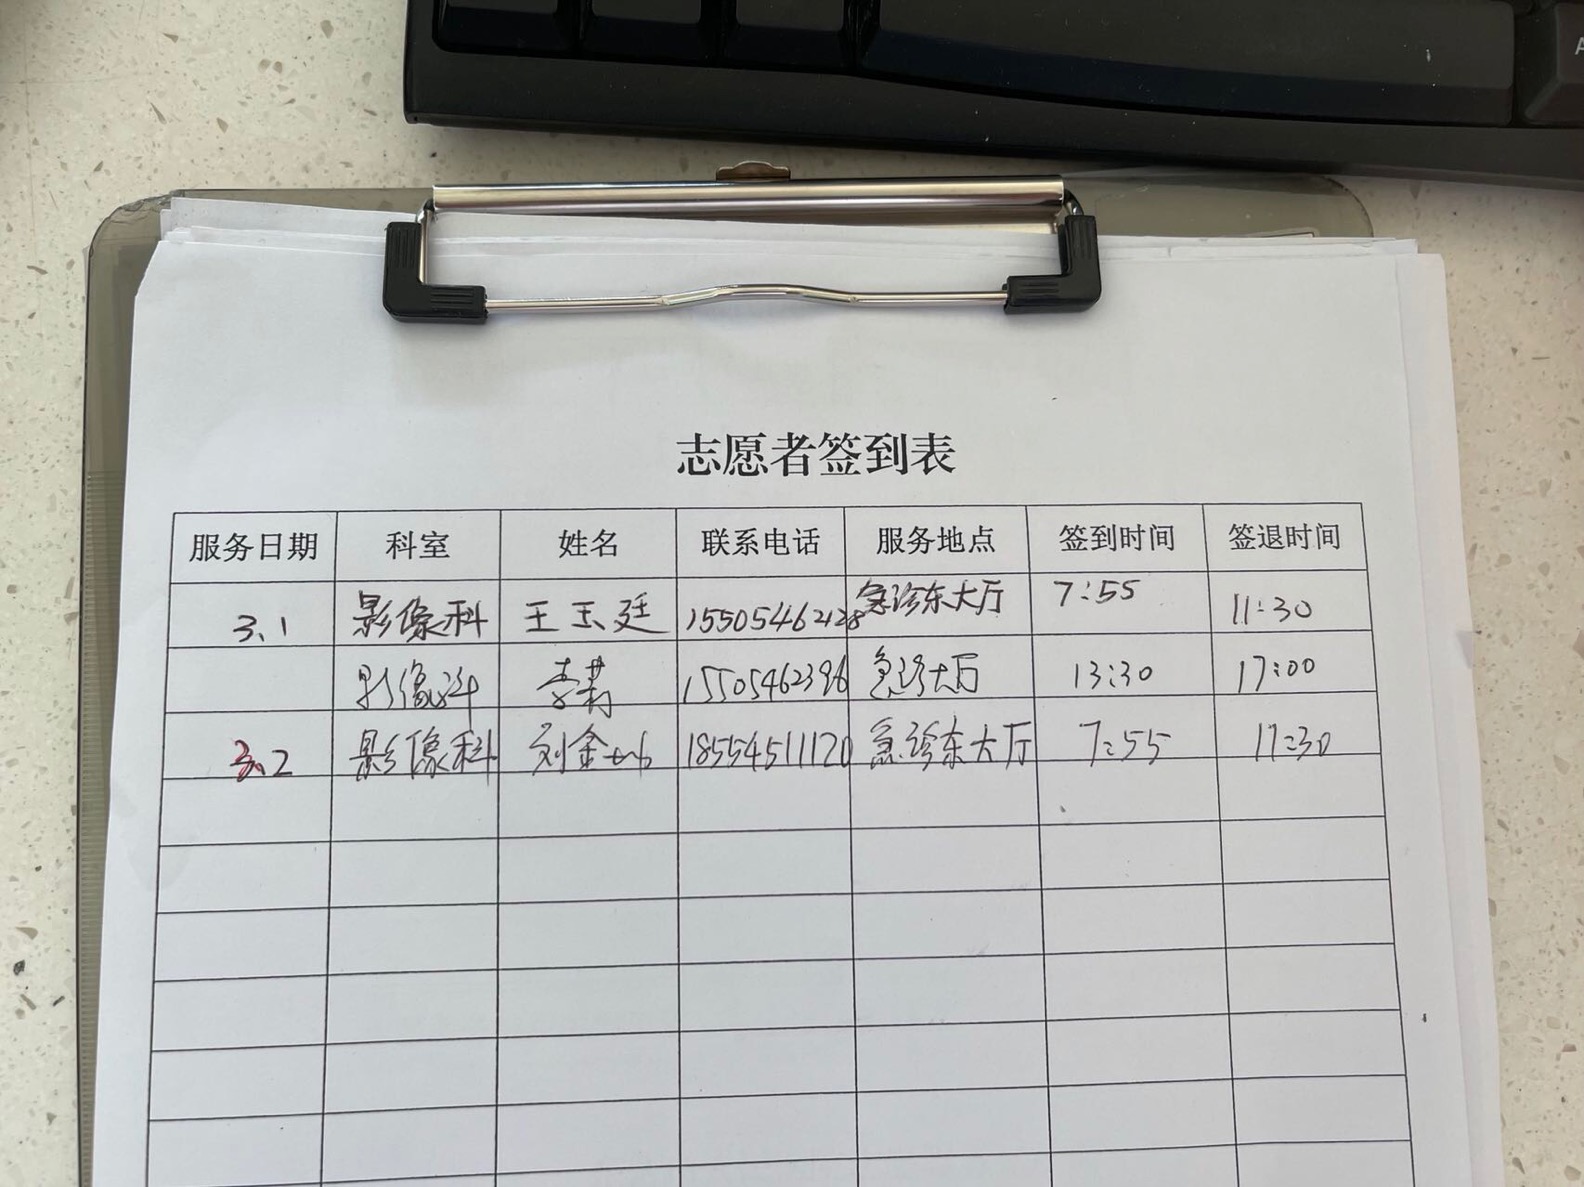 志愿者签到表
服务日期 科室 姓名 联系电话 服务地点 签到时间 签退时间
3.1 影像科 王玉廷 15505462128 急诊东大厅 7:55 11:30
影像科 李莉 15505462396 急诊大厅 13:30 17:00
3.2 影像科 刘金 18554511120 急诊东大厅 7:55 11:30